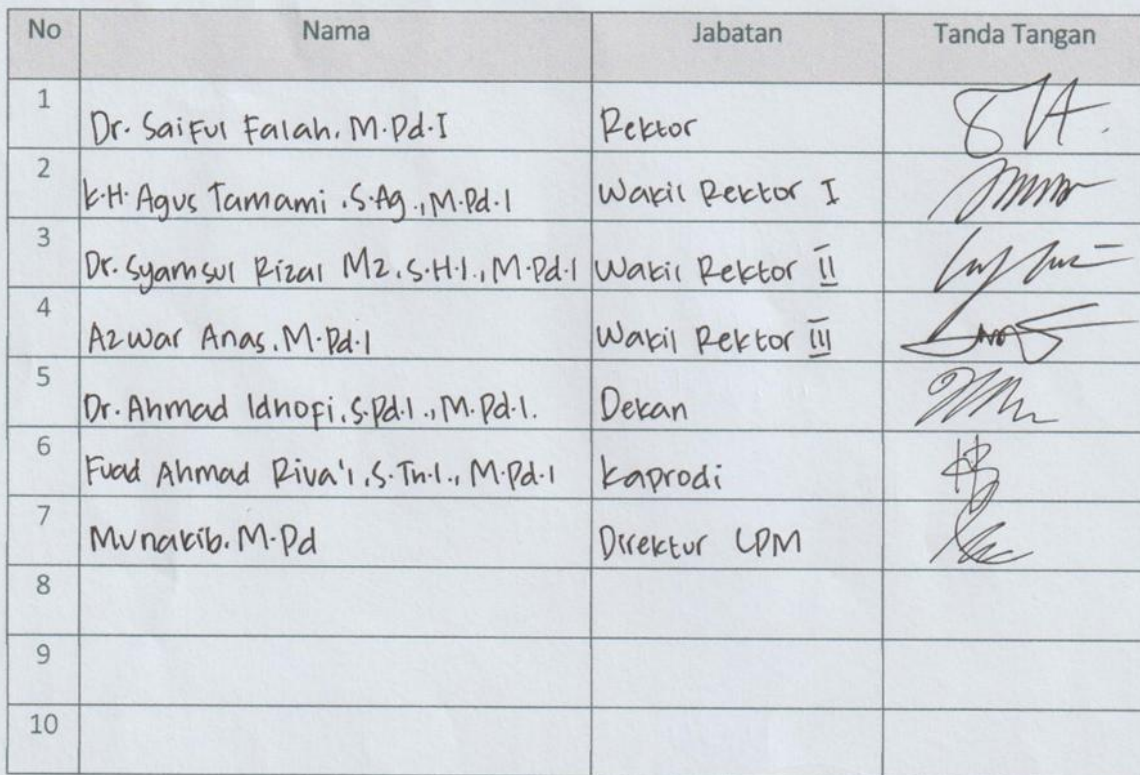 No Nama Jabatan Tanda Tangan
1 Dr. Saiful Falah, M.Pd.I Rektor
2 K.H. Agus Tamami, S.Ag., M.Pd.I Wakil Rektor I
3 Dr. Syamsul Rizal Mz, S.H.I., M.Pd.I Wakil Rektor II
4 Azwar Anas, M.Pd.I Wakil Rektor III
5 Dr. Ahmad Idhofi, S.Pd.I., M.Pd.I. Dekan
6 Fuad Ahmad Riva'i, S.Th.I., M.Pd.I Kaprodi
7 Munakib, M.Pd Direktur LPM
8
9
10